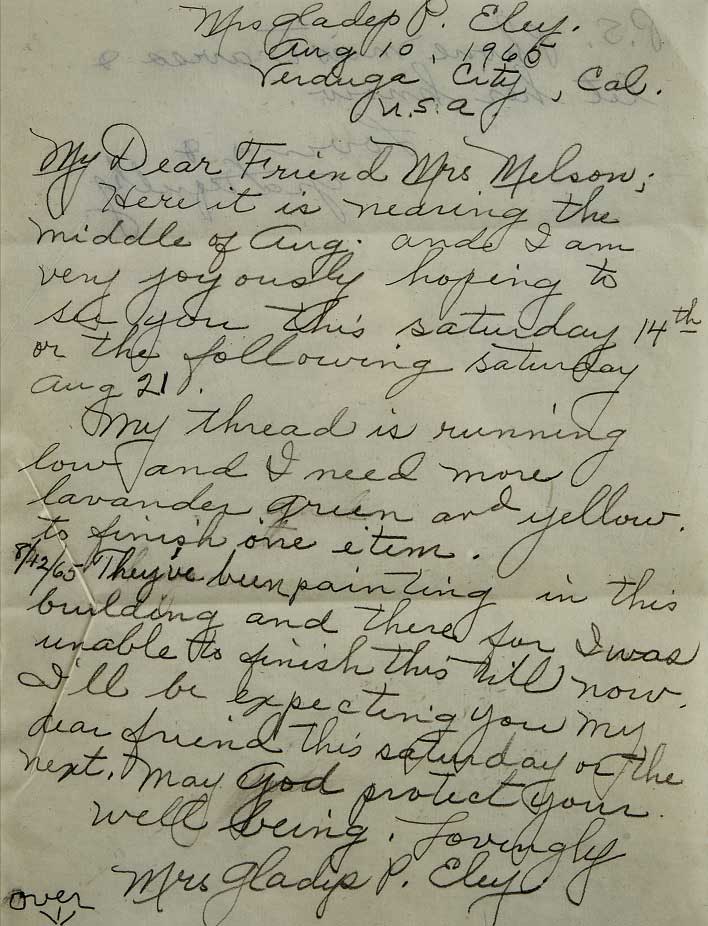 Mrs Gladys P. Eley.
Aug 10, 1965
Verduga City, Cal.
U.S.A
My Dear Friend Mrs Melson;
Here it is nearing the
middle of Aug. and I am
very joyously hoping to
see you this saturday 14th
or the following saturday
Aug 21.
My thread is running
low and I need more
lavander green and yellow.
to finish one item.
8/12/65 They've been painting in this
building and there for I was
unable to finish this till now.
I'll be expecting you my
dear friend this saturday or the
next. May God protect your
well being. Lovingly
Mrs Gladys P. Eley.
over